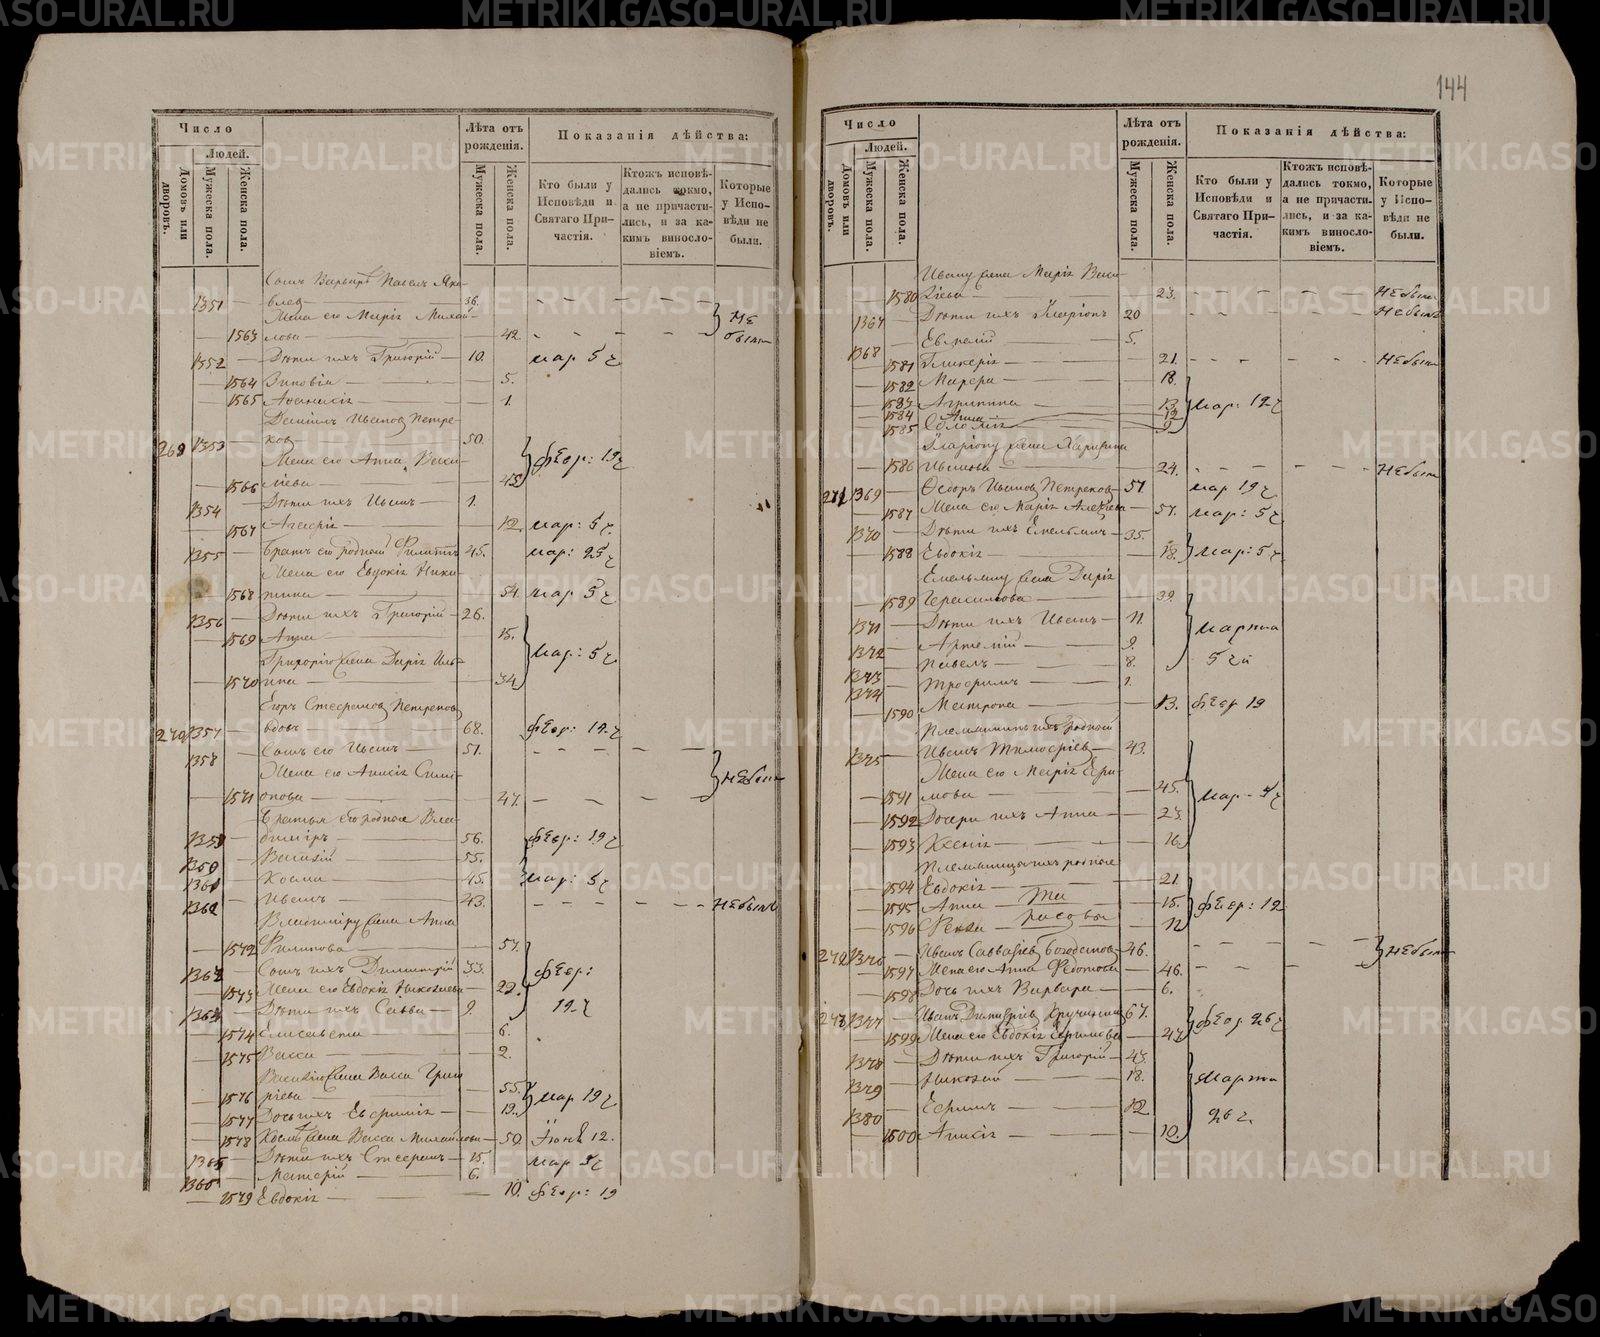 144
Число
Людей.
Домовъ или дворовъ.
Мужеска пола.
Женска пола.
Лѣта отъ рожденія.
Мужеска пола.
Женска пола.
Показанія дѣйства:
Кто были у Исповѣди и Святаго Причастія.
Ктожъ исповѣдались токмо, а не причастились, и за какимъ винословіемъ.
Которые у Исповѣди не были.
Павелъ Яко-
1351 — влев — 36.
Жена его Марія Михай-
1563 лова — 42. не были
1352 — Дѣти ихъ Григорій — 10. мар 5 ч
1564 Зиновія — 5.
1565 Афанасія — 1.
Даніилъ Ивановъ Петре-
269 1353 ковъ — 50.
Жена его Анна Васи- февр: 19 ч
1566 ліева — 45.
1354 — Дѣти ихъ Иванъ — 1.
1567 Агафія — 12. мар: 5 ч.
1355 — Братъ его родной Филиппъ 45. мар: 25 ч
Жена его Евдокія Ники-
1568 тина — 54. мар 5 ч
1356 — Дѣти ихъ Григорій — 26.
1569 Анна — 15.
Григорію жена Дарія Иль- мар: 5 ч
1570 ина — 34.
Егоръ Стефановъ Петрековъ
270 1357 вдовъ — 68. февр: 19 ч
1358 — Сынъ его Иванъ — 51.
Жена его Анисія Сими- не были
1571 онова — 47.
Братья его родные Вла-
димиръ — 56. февр: 19 ч
Василій — 55.
Косма — 45. мар: 5 ч
Иванъ — 43. не былъ
Владиміру жена Анна
1572 Филипова — 57.
Сынъ ихъ Димитрій 33. февр:
1573 Жена его Евдокія Николаева — 29. 19 ч
Дѣти ихъ Савва — 9.
1574 Елисавета — 6.
1575 Васса — 2.
Василію жена Васса Григо
1576 ріева — 55. мар 19 ч
1577 Дочь ихъ Евфимія — 19.
1578 Космѣ жена Васса Михайлова — 50. Іюня 12.
1365 — Дѣти ихъ Стефанъ — 15. мар 5 ч
1366 — 6.
1579 Евдокія — 10. февр: 19
Число
Людей.
Домовъ или дворовъ.
Мужеска пола.
Женска пола.
Лѣта отъ рожденія.
Мужеска пола.
Женска пола.
Показанія дѣйства:
Кто были у Исповѣди и Святаго Причастія.
Ктожъ исповѣдались токмо, а не причастились, и за какимъ винословіемъ.
Которые у Исповѣди не были.
Ивану жена Марія Васи-
1580 ліева — 23. не была
1367 — Дѣти ихъ Иларіонъ 20 не былъ
1368 5.
1581 Гликерія — 21. не была
1582 Марфа — 18.
1583 Агрипина — 13. мар: 19 ч
1584 Анна — 12
1585 Соломія — 9
Иларіону жена Харитина
1586 Иванова — 24. не была
271 1369 — Ѳедоръ Ивановъ Петрековъ — 57. мар 19 ч
1587 Жена его Марія Алексѣева — 57. мар: 5 ч
1370 — Дѣти ихъ Емельянъ — 35.
1588 Евдокія — 18. мар: 5 ч
Емельяну жена Дарія
1589 Герасимова — 39.
1371 — Дѣти ихъ Иванъ — 11. марта
1372 — Артемій — 9.
1373 — Павелъ — 8. 5 чи
1374 — Трофимъ — 1.
1590 Матрона — 13. февр 19
Племянникъ ихъ родной
1375 — Иванъ Тимофѣевъ — 43.
Жена его Марія Ефи-
1591 мова — 45. мар - 5 ч
1592 Дочери ихъ Анна — 23.
1593 Ксенія — 16.
Племянницы ихъ родные
1594 Евдокія — 21.
1595 Анна — 15. февр: 19
1596 Фекла — 12
272 1376 — Иванъ Савватіевъ Богодановъ 46. не были
1597 Жена его Анна Федотова — 46.
1598 Дочь ихъ Варвара — 6.
273 1377 — Иванъ Димитріевъ Кручининъ 67. февр 26 ч
1599 Жена его Евдокія Ефимова — 47
1378 — Дѣти ихъ Григорій — 43.
1379 Николай — 18. марта
1380 — Ефимъ — 12 26 ч.
1500 Анисія — 10.